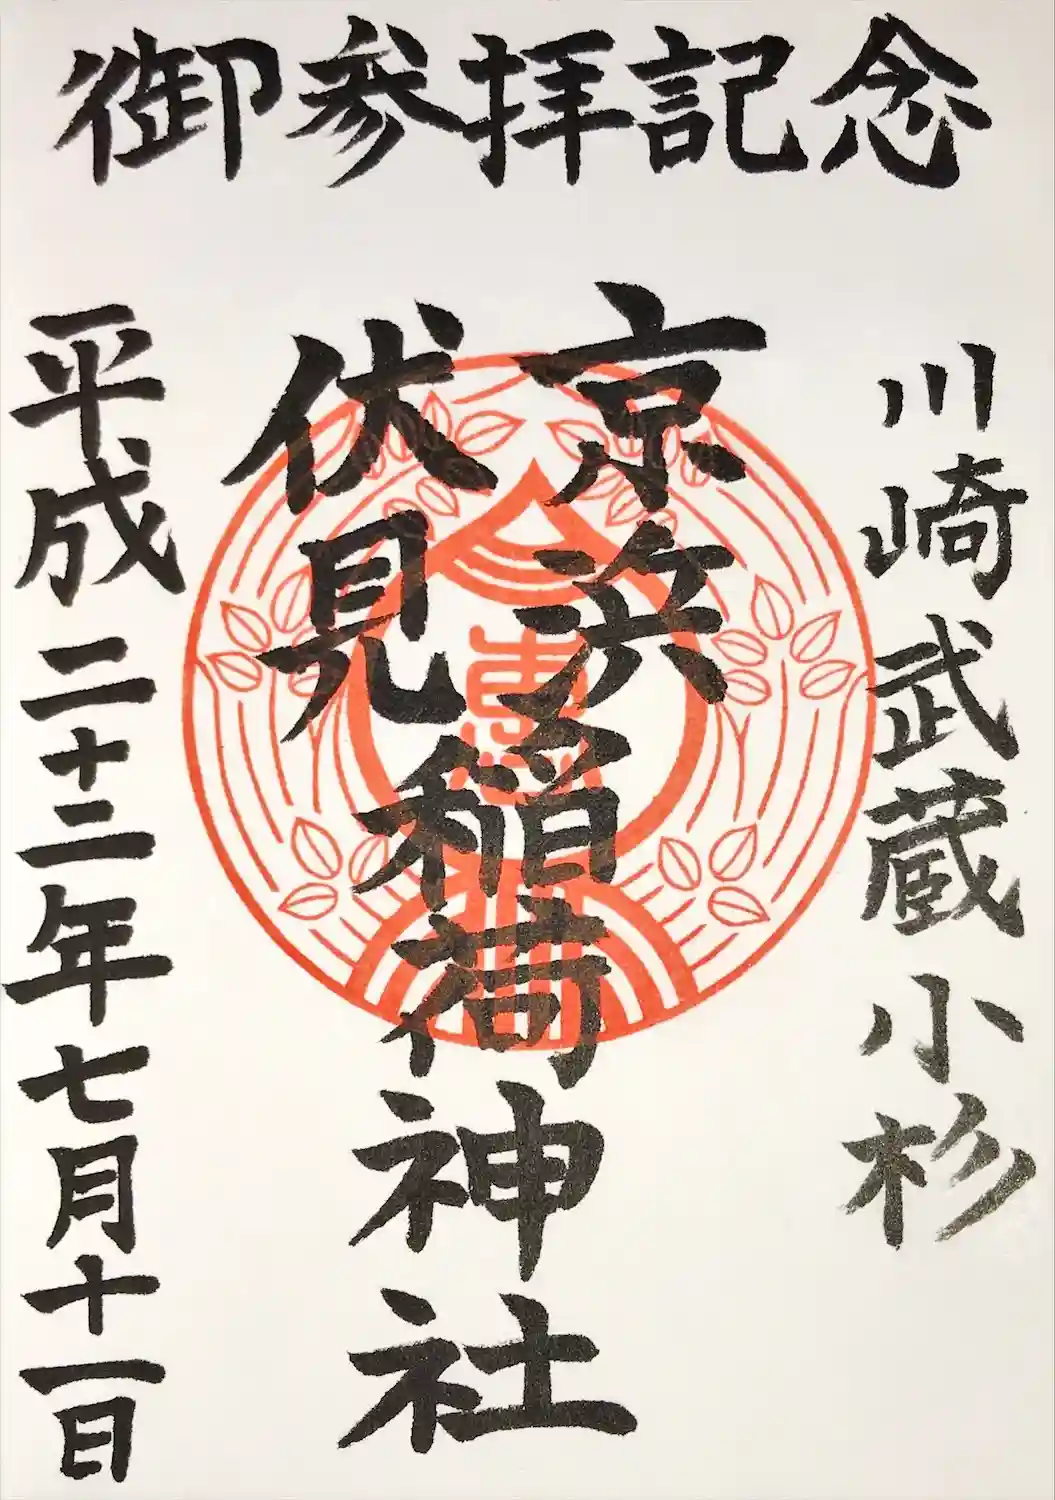 御参拝記念
川崎武蔵小杉
京浜
伏見
稲荷神社
平成二十二年七月十一日
恵